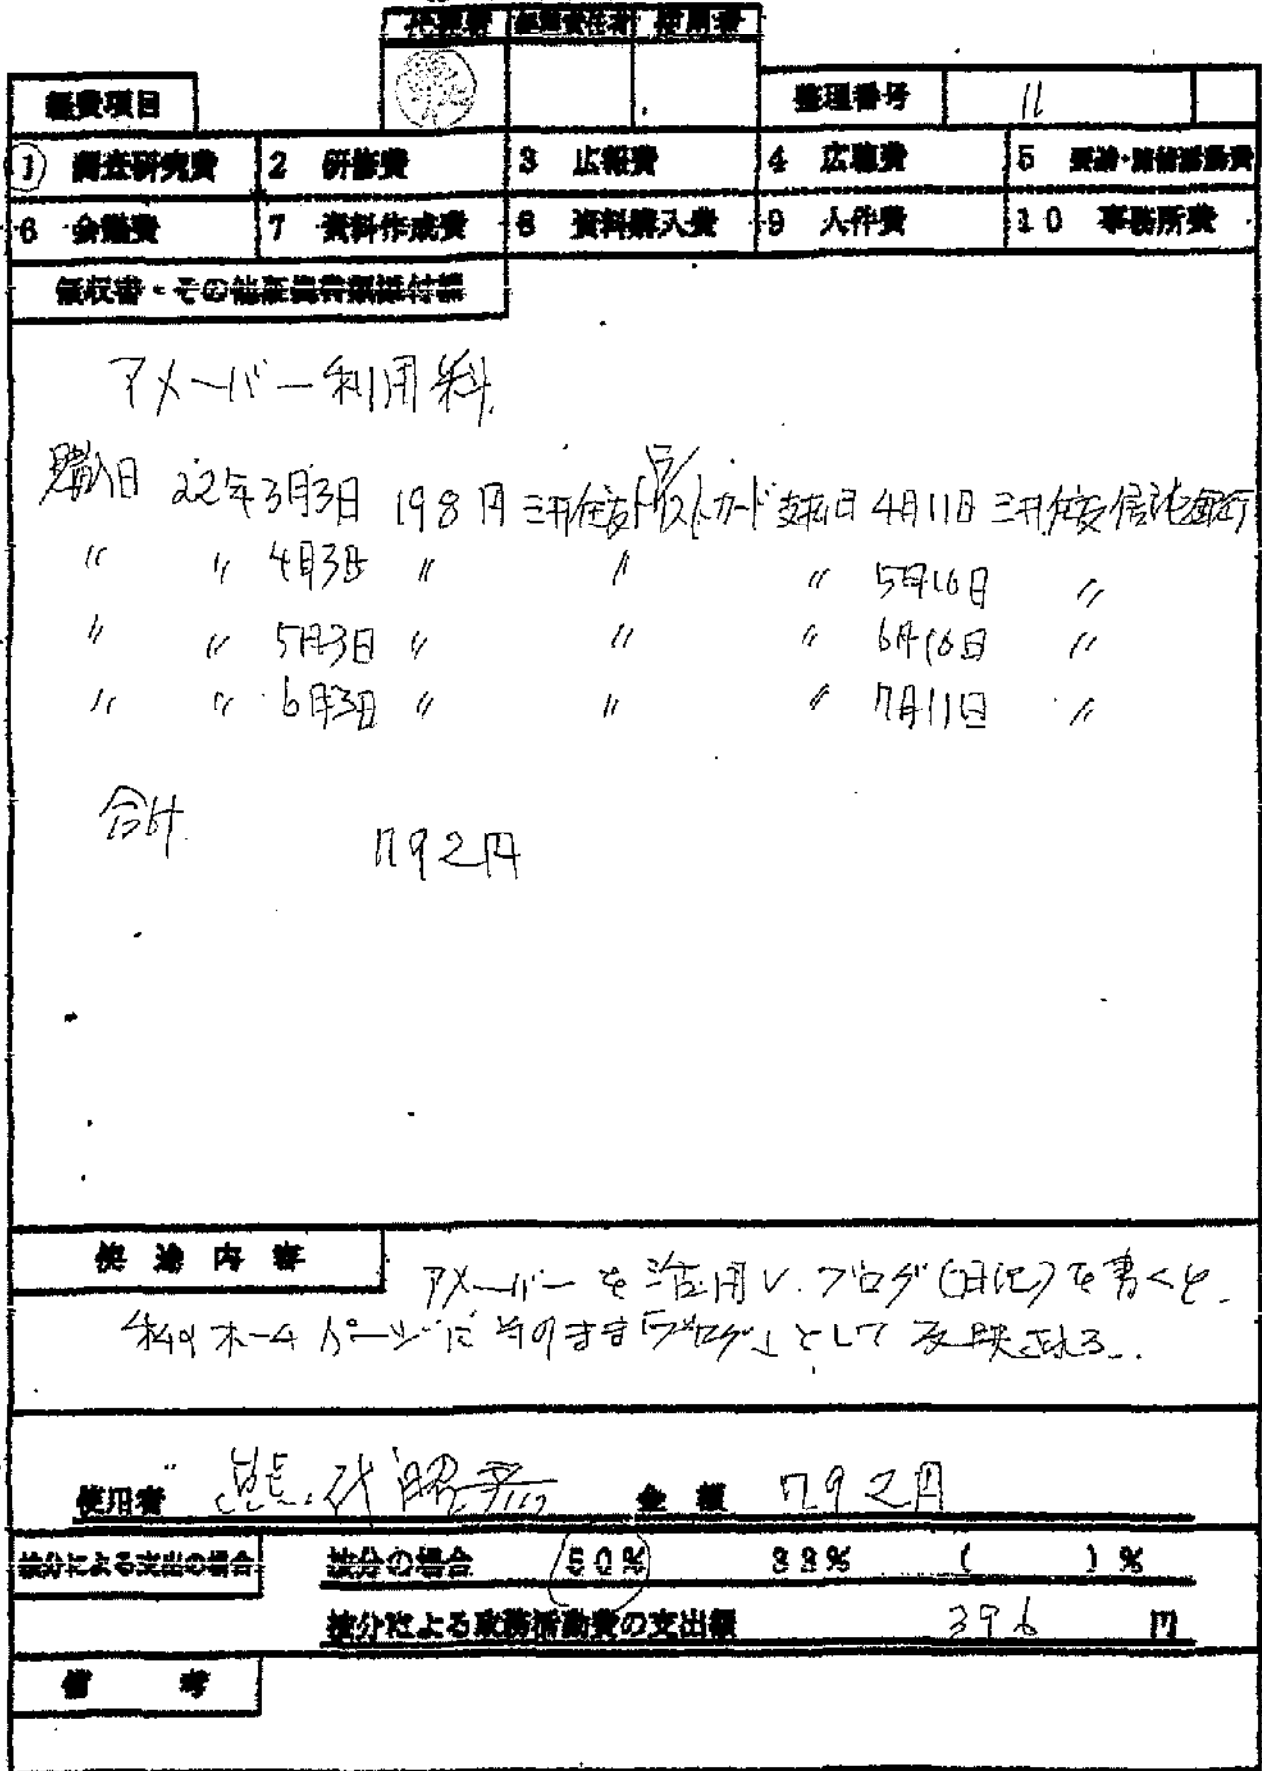 経理責任者 使用者
経費項目 整理番号 11
① 調査研究費 2 研修費 3 広報費 4 広聴費 5 要請・陳情活動費
6 会議費 7 資料作成費 8 資料購入費 9 人件費 10 事務所費
領収書・その他証拠書類添付欄
アメーバー利用料
購入日 22年3月3日 198円 三井住友トラストカード 支払日 4月11日 三井住友信託銀行
〃 〃 4月3日 〃 〃 〃 5月10日 〃
〃 〃 5月3日 〃 〃 〃 6月10日 〃
〃 〃 6月3日 〃 〃 〃 7月11日 〃
合計
792円
使途内容
アメーバーを活用し、ブログ(日記)を書くと、
私のホームページにそのまま「ブログ」として反映される。
使用者 熊代昭彦 金額 792円
按分による支出の場合 按分の場合 50% 33% ( )%
按分による政務活動費の支出額 396 円
備考